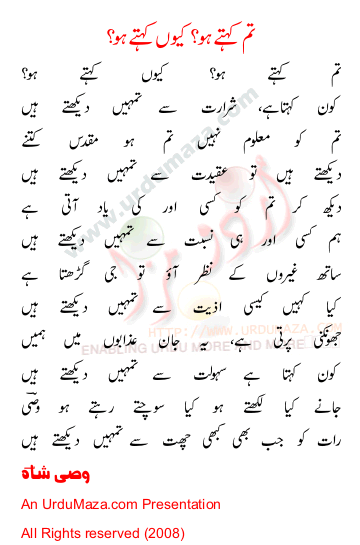 تم کہتے ہو؟ کیوں کہتے ہو؟
تم کہتے ہو؟ کیوں کہتے ہو؟
کون کہتا ہے، شرارت سے تمہیں دیکھتے ہیں
تم کو معلوم نہیں تم ہو مقدس کتنے
دیکھتے ہیں تو عقیدت سے تمہیں دیکھتے ہیں
دیکھ کر تم کو کسی اور کی یاد آتی ہے
ہم کسی اور ہی نسبت سے تمہیں دیکھتے ہیں
ساتھ غیروں کے نظر آؤ تو جی گڑھتا ہے
کیا کہیں کیسی اذیت سے تمہیں دیکھتے ہیں
جھونکنی پڑتی ہے، یہ جان عذابوں میں ہمیں
کون کہتا ہے سہولت سے تمہیں دیکھتے ہیں
جانے کیا لکھتے ہو کیا سوچتے رہتے ہو وصیؔ
رات کو جب بھی کبھی چھت سے تمہیں دیکھتے ہیں
وصی شاہ
An UrduMaza.com Presentation
All Rights reserved (2008)
www.urdumaza.com
اردو مزا
HTTP://WWW.URDUMAZA.COM
ENABLING URDU MORE AND MORE